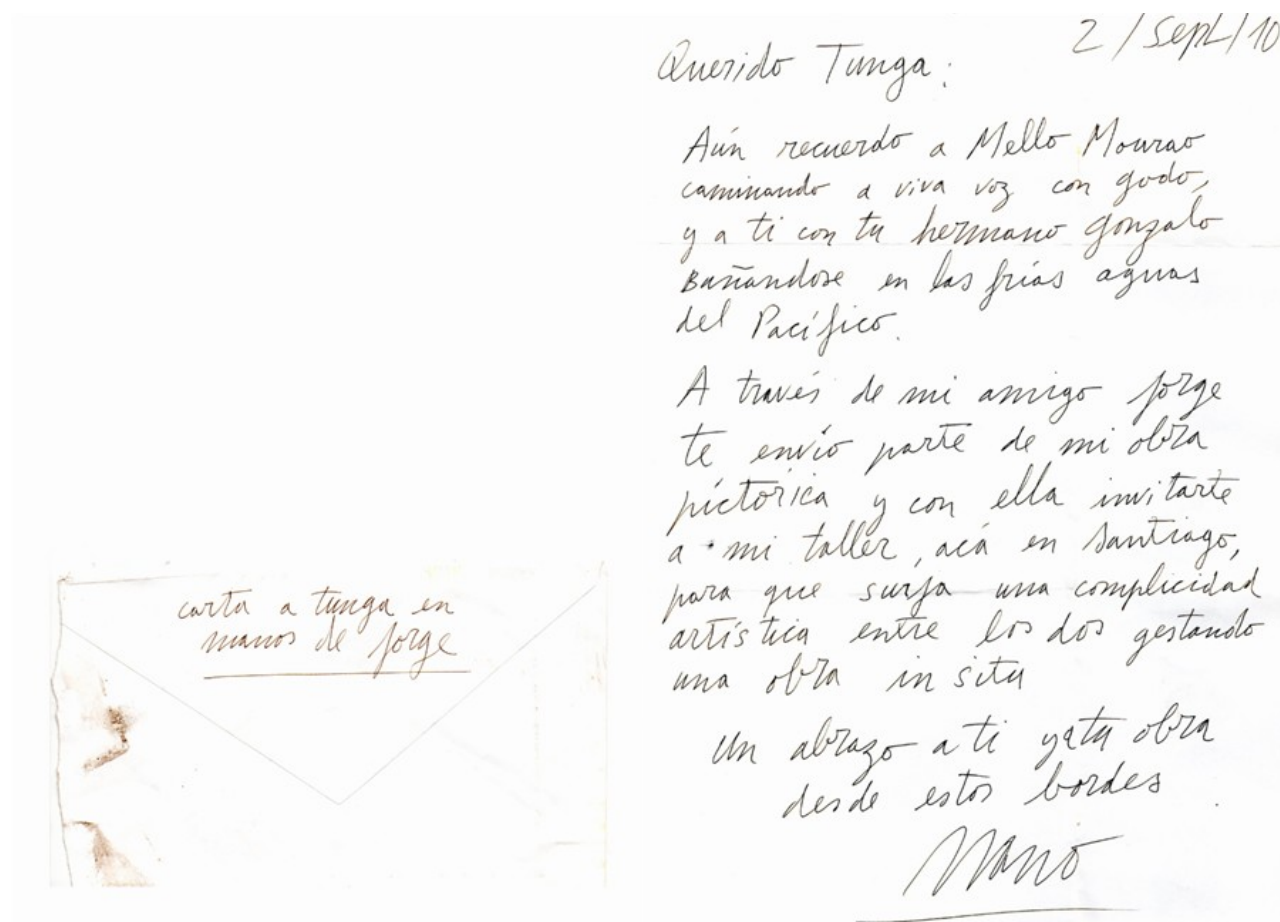 carta a tunga en
manos de jorge
2/Sept/10
Querido Tunga:
Aún recuerdo a Mello Mourao
caminando a viva voz con godo,
y a ti con tu hermano gonzalo
Bañandose en las frías aguas
del Pacífico.
A través de mi amigo jorge
te envío parte de mi obra
píctorica y con ella invitarte
a mi taller, acá en Santiago,
para que surja una complicidad
artística entre los dos gestando
una obra in situ
un abrazo a ti y a tu obra
desde estos bordes